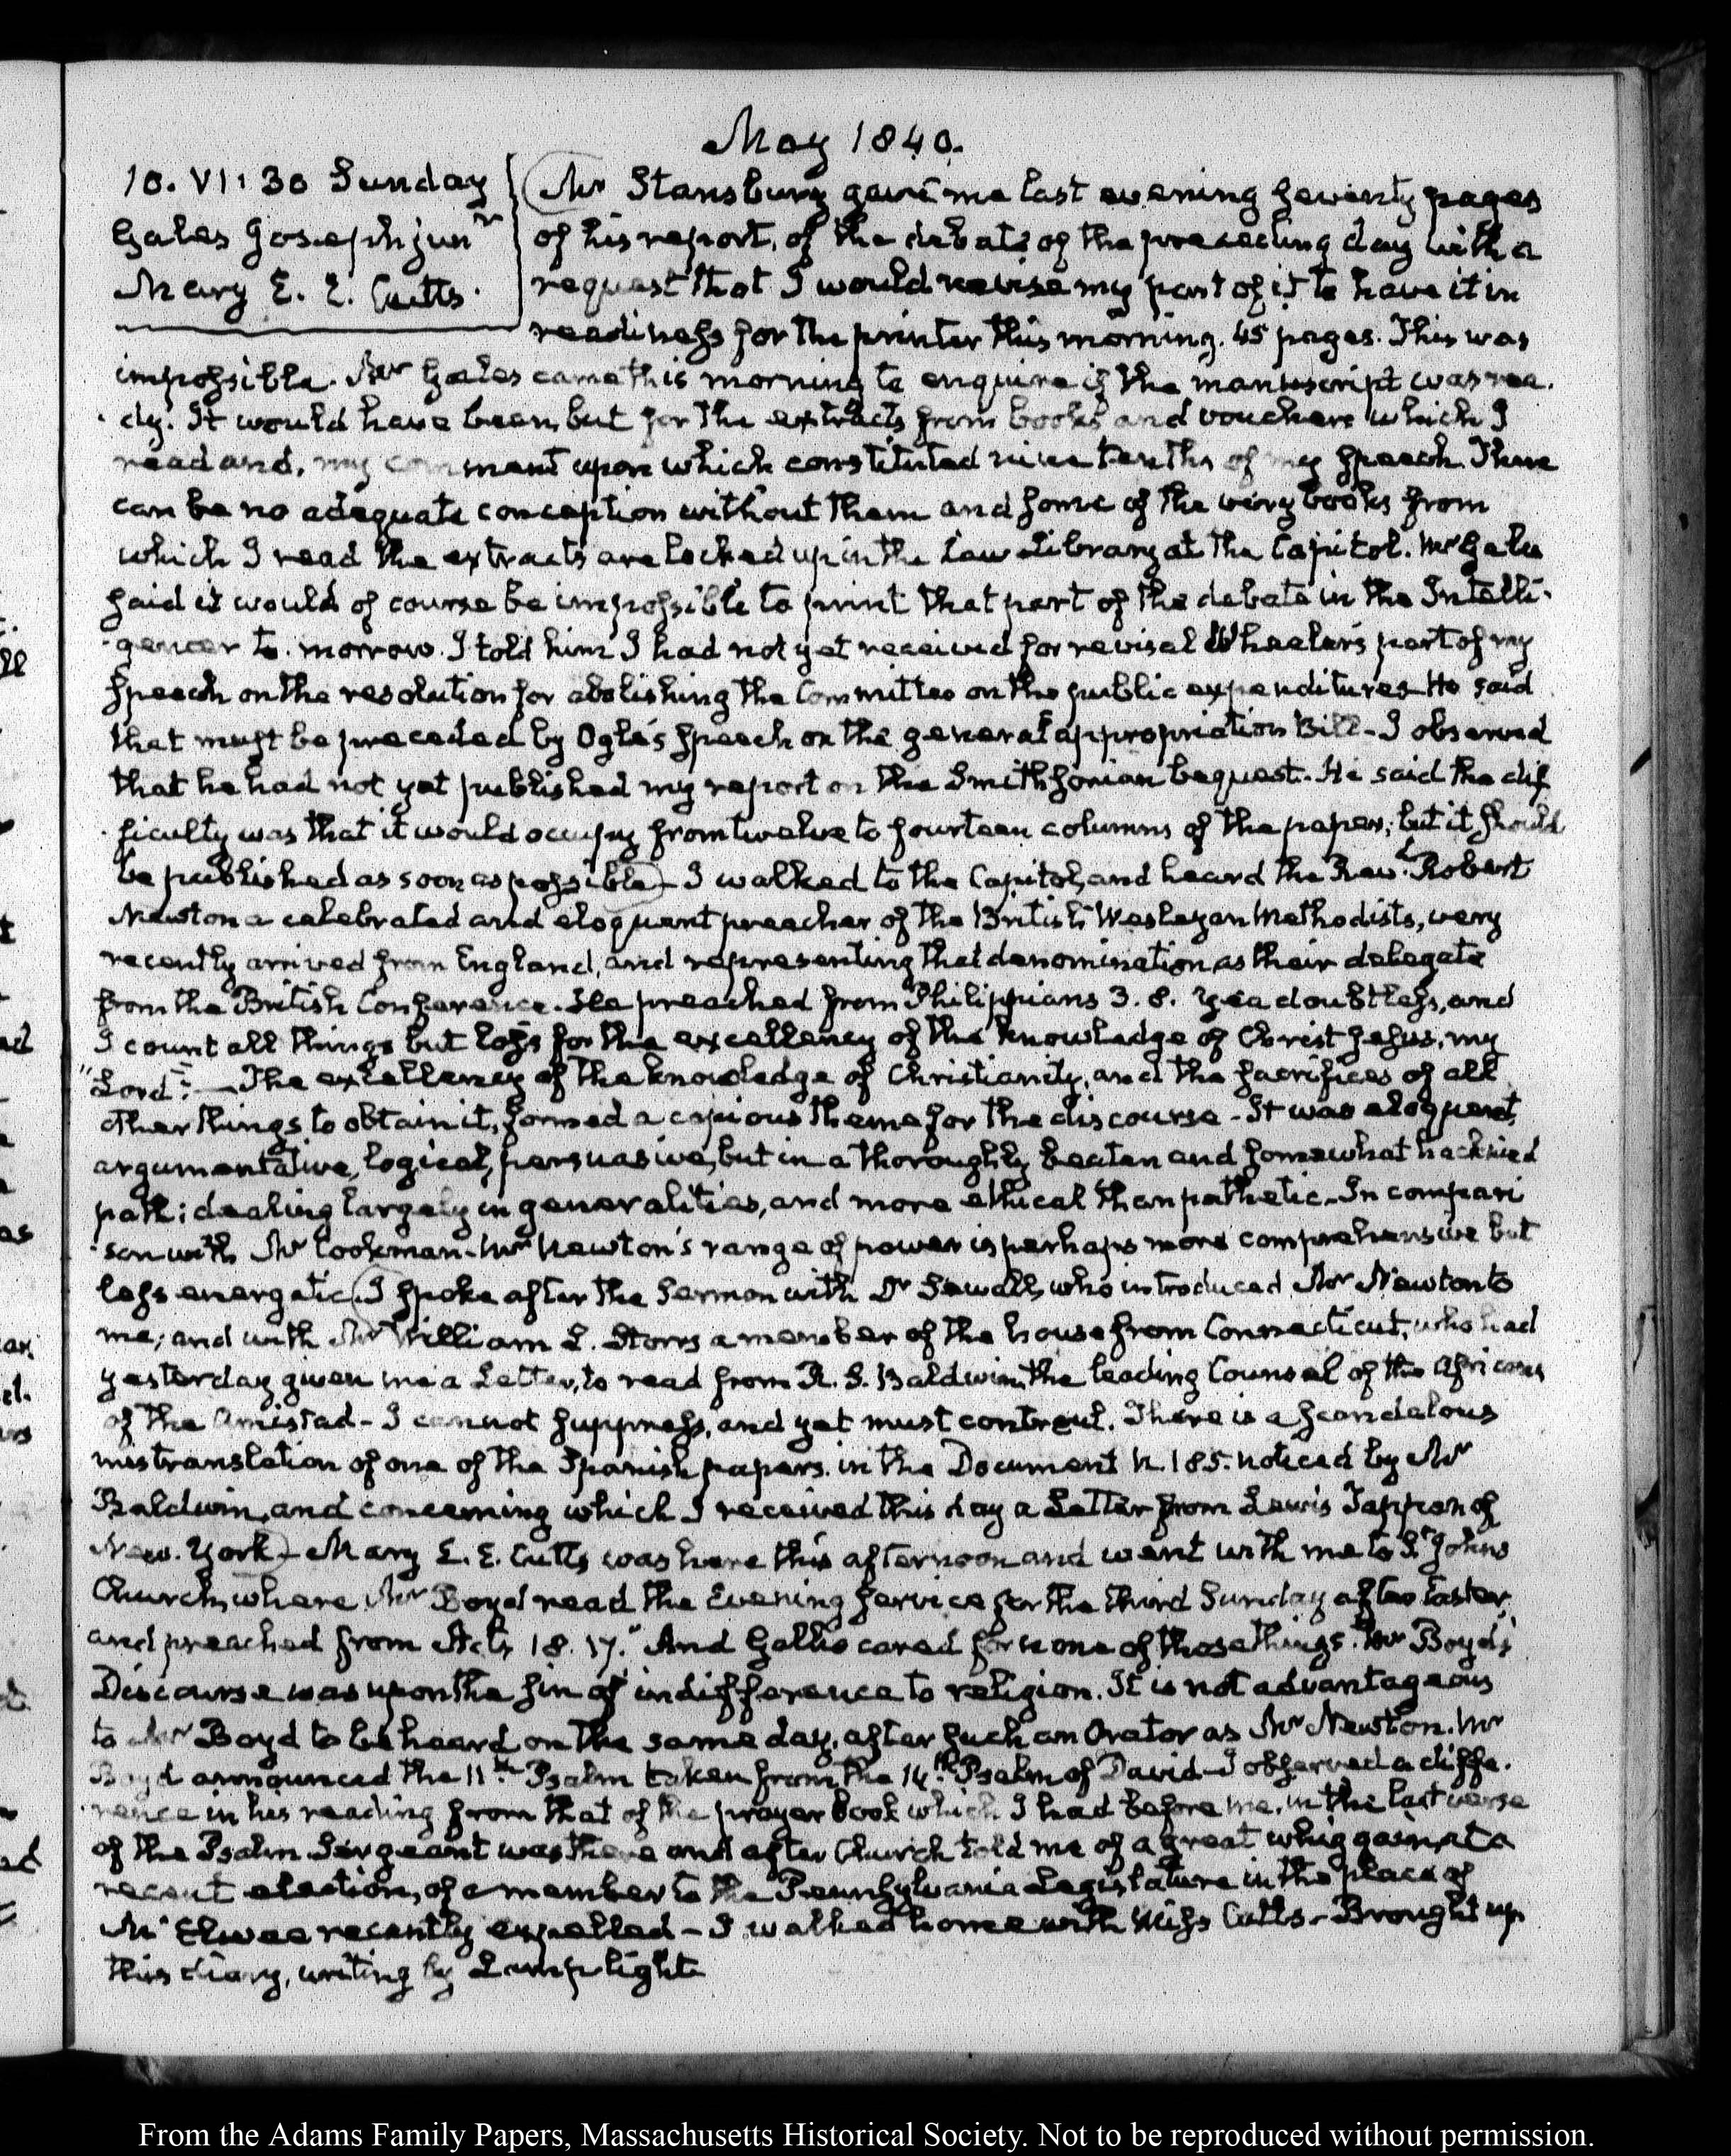 May 1840.
10. VI:30 Sunday
Gales Joseph junr
Mary E. E. Cutts.
Mr Stansbury gave me last evening seventy pages
of his report, of the debate of the preceding day with a
request that I would revise my part of it to have it in
readiness for the printer this morning. 45 pages. This was
impossible. Mr Gales came this morning to enquire if the manuscript was rea-
dy. It would have been, but for the extracts from books and vouchers which I
read and, my comment upon which constituted nine tenths of my speech. There
can be no adequate conception without them and some of the very books from
which I read the extracts are locked up in the Law Library at the Capitol. Mr Gales
said it would of course be impossible to print that part of the debate in the Intelli-
gencer to-morrow. I told him I had not yet received for revisal Wheeler's part of my
speech on the resolution for abolishing the Committee on the public expenditures. He said
that must be preceded by Ogle's speech on the general appropriation Bill - I observed
that he had not yet published my report on the Smithsonian bequest. He said the dif
ficulty was that it would occupy from twelve to fourteen columns of the paper; but it should
be published as soon as possible - I walked to the Capitol, and heard the Revd. Robert
Newton a celebrated and eloquent preacher of the British Wesleyan Methodists, very
recently arrived from England, and representing that denomination as their delegate
from the British Conference. He preached from Philippians 3. 8. Yea doubtless, and
I count all things but loss for the excellency of the knowledge of Christ Jesus, my
"Lord": — The excellency of the knowledge of Christianity, and the sacrifices of all
other things to obtain it, formed a copious theme for the discourse - It was eloquent,
argumentative, logical, persuasive, but in a thoroughly beaten and somewhat hacknied
path; dealing largely in generalities, and more ethical than pathetic - In compari
son with Mr Cookman - Mr Newton's range of power is perhaps more comprehensive but
less energetic. I spoke after the Sermon with Dr Sewall, who introduced Mr Newton to
me; and with Mr William L. Storrs a member of the house from Connecticut, who had
yesterday given me a Letter, to read from R. S. Baldwin, the leading Counsel of the Africans
of the Amistad - I cannot suppress, and yet must controul. There is a scandalous
mistranslation of one of the Spanish papers in the Document N. 185. noticed by Mr
Baldwin, and concerning which I received this day a Letter from Lewis Tappan of
New-York - Mary E. E. Cutts was here this afternoon and went with me to St Johns
Church, where Mr Boyd read the Evening service for the third Sunday after Easter,
and preached from Acts 18. 17. "And Gallio cared for none of those things. Mr Boyd's
Discourse was upon the sin of indifference to religion. It is not advantageous
to Mr Boyd to be heard on the same day, after such an Orator as Mr Newton. Mr
Boyd announced the 11th Psalm taken from the 14th Psalm of David - I observed a diffe-
rence in his reading from that of the prayer book which I had before me, in the last verse
of the Psalm. Sergeant was there and after Church told me of a great whig gain, at a
recent election, of a member to the Pennsylvania Legislature in the place of
McElwee recently expelled - I walked home with Miss Cutts - Brought up
this diary, writing by Lamp light
From the Adams Family Papers, Massachusetts Historical Society. Not to be reproduced without permission.